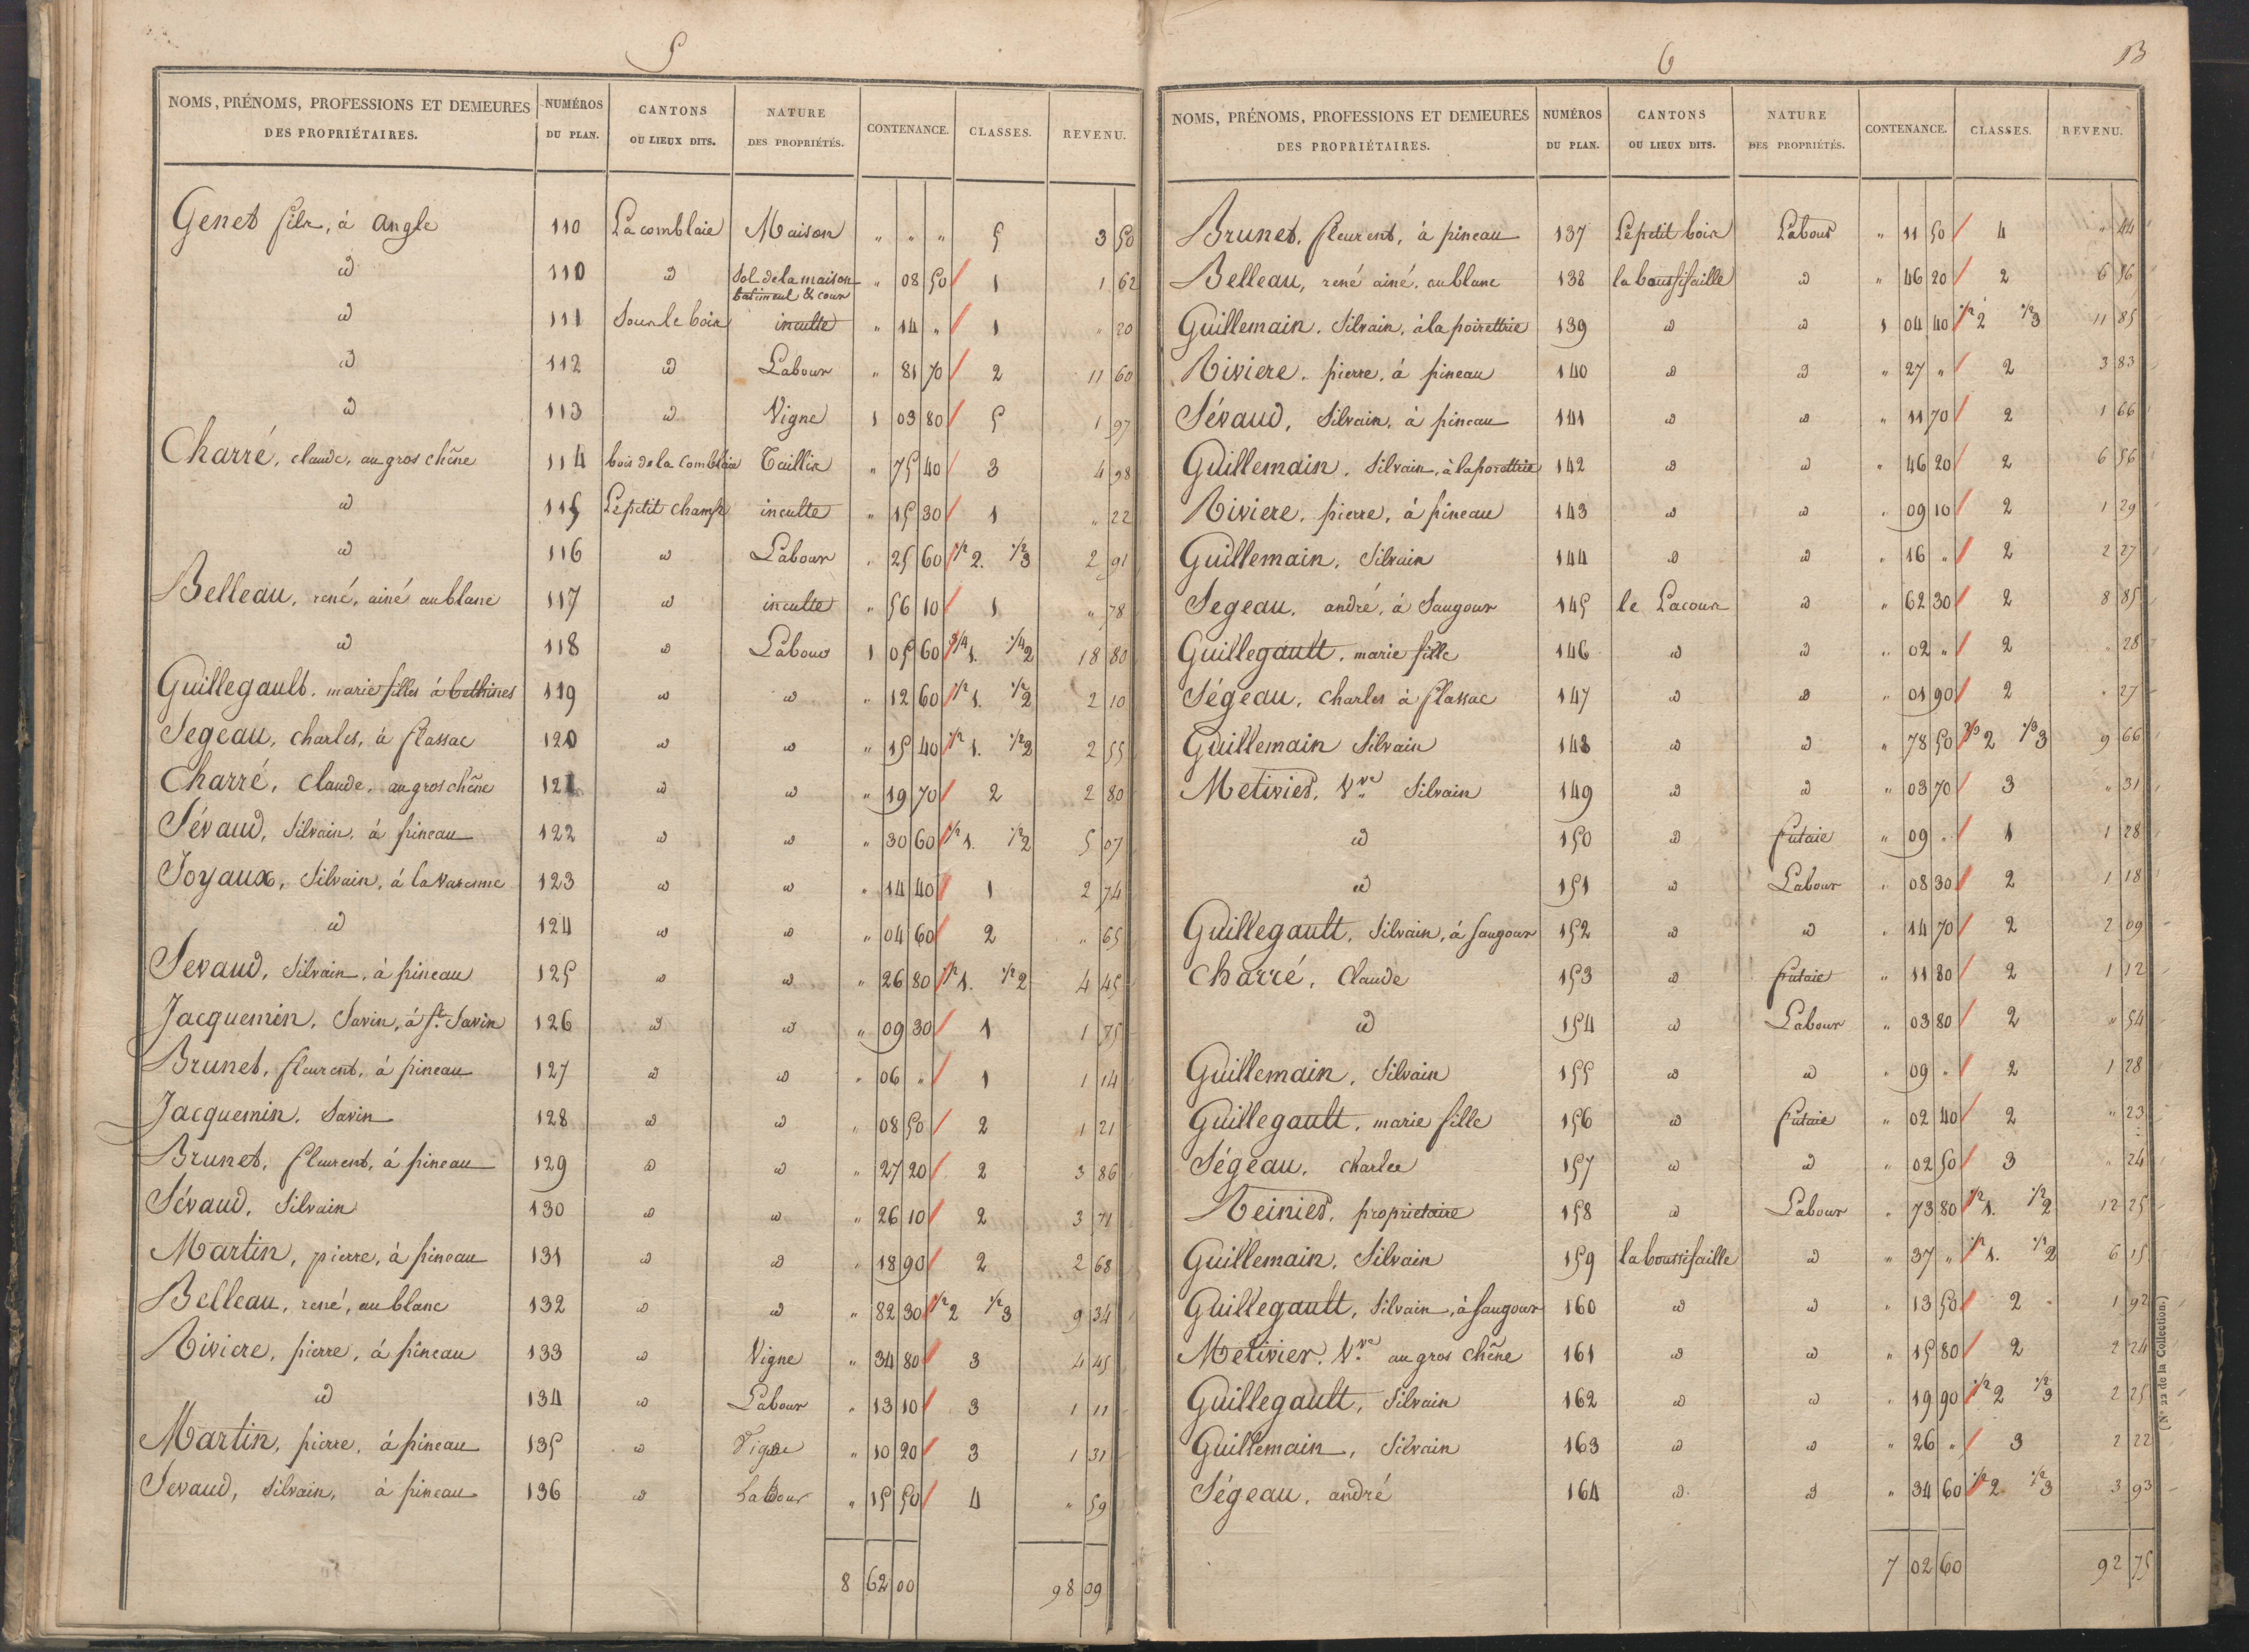 5
NOMS, PRÉNOMS, PROFESSIONS ET DEMEURES DES PROPRIÉTAIRES. NUMÉROS DU PLAN. CANTONS OU LIEUX DITS. NATURE DES PROPRIÉTÉS. CONTENANCE. CLASSES. REVENU.
Genet fils, à Angle 110 La comblaie Maison " " " 5 3 50
id 110 id Sol de la maison batiment & cour " 08 50 1 1 62
id 111 Sous le bois inculte " 14 " 1 " 20
id 112 id Labour " 81 70 2 11 60
id 113 id Vigne 1 03 80 5 1 97
Charré, claude, au gros chêne 114 bois de la Comblaie Taillis " 75 40 3 4 98
id 115 Le petit champ inculte " 15 30 1 " 22
id 116 id Labour " 25 60 1/2 2. 1/2 3 2 91
Belleau, rené, ainé au blanc 117 id inculte " 56 10 1 " 78
id 118 id Labour 1 05 60 3/4 1. 1/4 2 18 80
Guillegault, marie filles à bethines 119 id id " 12 60 1/2 1. 1/2 2 2 10
Segeau, charles, à flassac 120 id id " 15 40 1/2 1. 1/2 2 2 55
Charré, Claude, au gros chêne 121 id id " 19 70 2 2 80
Sévaud, Silvain, à pineau 122 id id " 30 60 1/2 1. 1/2 2 5 07
Joyaux, Silvain, à la Varenne 123 id id " 14 40 1 2 74
id 124 id id " 04 60 2 " 65
Sevaud, Silvain, à pineau 125 id id " 26 80 1/2 1. 1/2 2 4 45
Jacquemin, Savin, à St. Savin 126 id id " 09 30 1 1 75
Brunet, fleurent, à pineau 127 id id " 06 " 1 1 14
Jacquemin, Savin 128 id id " 08 50 2 1 21
Brunet, fleurent, à pineau 129 id id " 27 20 2 3 86
Sévaud, Silvain 130 id id " 26 10 2 3 71
Martin, pierre, à pineau 131 id id " 18 90 2 2 68
Belleau, rené, au blanc 132 id id " 82 30 1/2 2 1/2 3 9 34
Riviere, pierre, à pineau 133 id Vigne " 34 80 3 4 45
id 134 id Labour " 13 10 3 1 11
Martin, pierre, à pineau 135 id Vigne " 10 20 3 1 31
Sevaud, Silvain, à pineau 136 id Labour " 15 50 4 " 59
8 62 00 98 09
6
13
NOMS, PRÉNOMS, PROFESSIONS ET DEMEURES DES PROPRIÉTAIRES. NUMÉROS DU PLAN. CANTONS OU LIEUX DITS. NATURE DES PROPRIÉTÉS. CONTENANCE. CLASSES. REVENU.
Brunet, fleurent, à pineau 137 Le petit bois Labour " 11 50 4 " 44
Belleau, rené ainé, au blanc 138 la boussifaille id " 46 20 2 6 56
Guillemain, Silvain, à la poirettrie 139 id id 1 04 40 1/2 2 1/2 3 11 85
Riviere, pierre, à pineau 140 id id " 27 " 2 3 83
Sévaud, Silvain, à pineau 141 id id " 11 70 2 1 66
Guillemain, Silvain, à la poirettrie 142 id id " 46 20 2 6 56
Riviere, pierre, à pineau 143 id id " 09 10 2 1 29
Guillemain, Silvain 144 id id " 16 " 2 2 27
Segeau, andré, à Saugour 145 le Lacoux id " 62 30 2 8 85
Guillegault, marie fille 146 id id " 02 " 2 " 28
Ségeau, charles à flassac 147 id id " 01 90 2 " 27
Guillemain Silvain 148 id id " 78 50 2/3 2 1/3 3 9 66
Metivier, Vve Silvain 149 id id " 03 70 3 " 31
id 150 id futaie " 09 " 1 1 28
id 151 id Labour " 08 30 2 1 18
Guillegault, Silvain, à Saugour 152 id id " 14 70 2 2 09
Charré, Claude 153 id futaie " 11 80 2 1 12
id 154 id Labour " 03 80 2 " 54
Guillemain, Silvain 155 id id " 09 " 2 1 28
Guillegault, marie fille 156 id futaie " 02 40 2 " 23
Ségeau, charles 157 id id " 02 50 3 " 24
Reinier, proprietaire 158 id Labour " 73 80 1/2 1. 1/2 2 12 25
Guillemain, Silvain 159 la boussifaille id " 37 " 1/2 1. 1/2 2 6 15
Guillegault, Silvain, à Saugour 160 id id " 13 50 2 1 92
Metivier, Vve au gros chêne 161 id id " 15 80 2 2 24
Guillegault, Silvain 162 id id " 19 90 1/2 2 1/2 3 2 25
Guillemain, Silvain 163 id id " 26 " 3 2 22
Ségeau, andré 164 id id " 34 60 1/2 2 1/2 3 3 93
7 02 60 92 75
(No 22 de la Collection.)